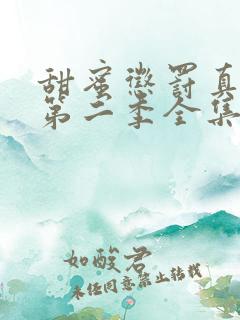 甜蜜惩罚真
第二季全集
如酸君
未经同意禁止转载